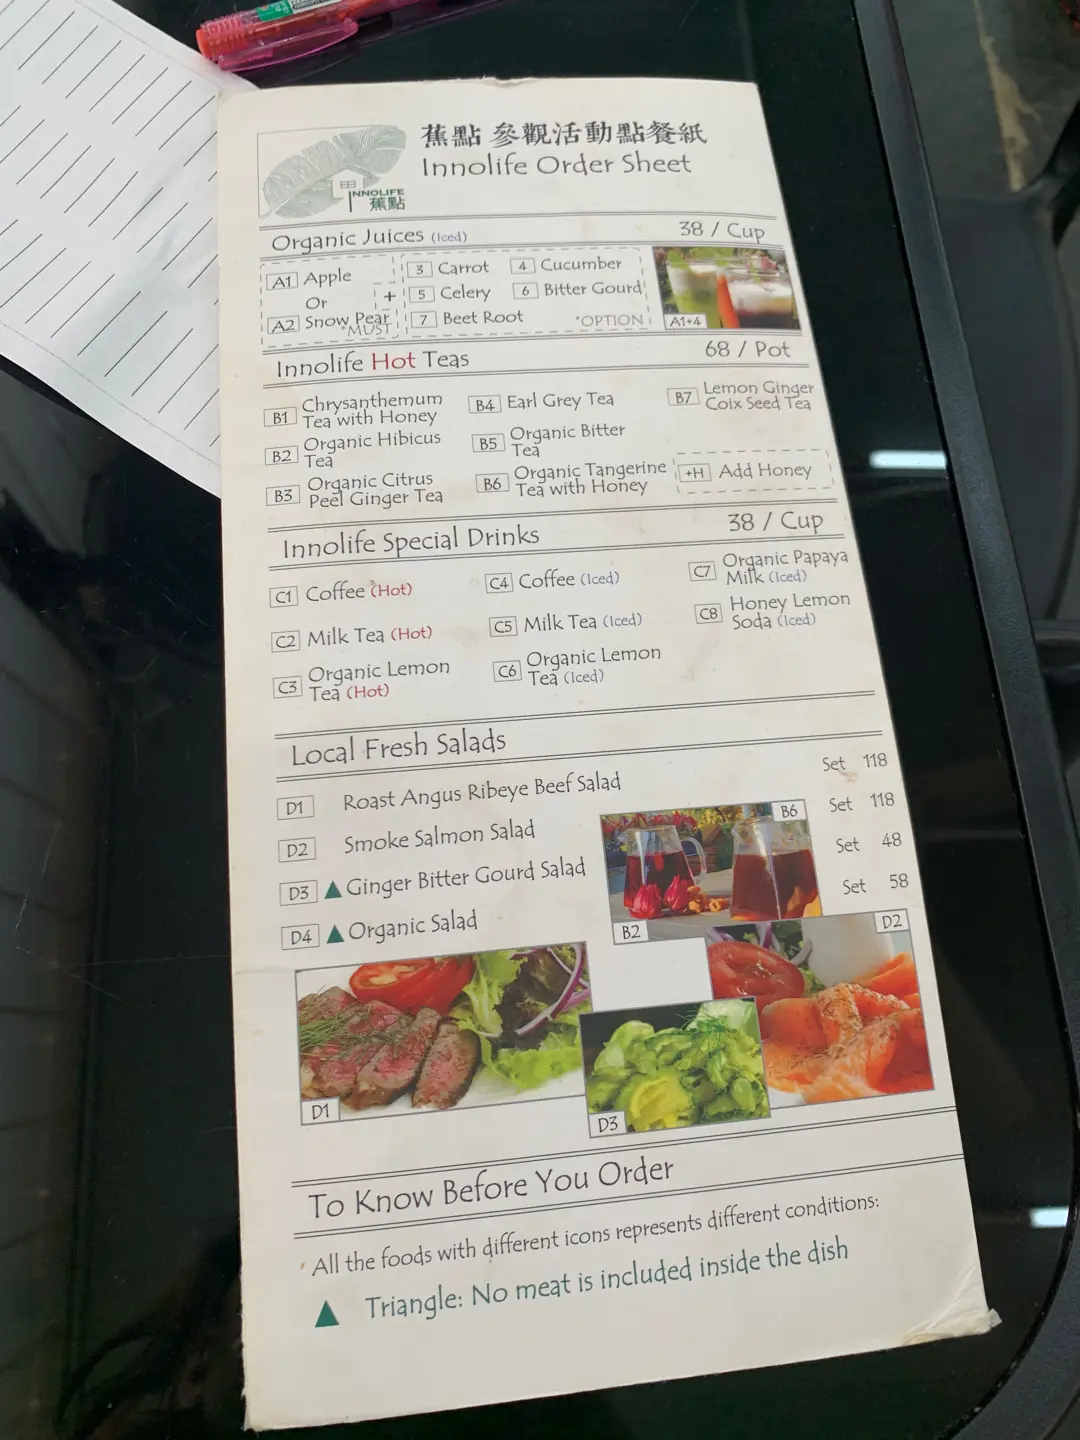 蕉點 參觀活動點餐紙
Innolife Order Sheet
INNOLIFE
蕉點
Organic Juices (Iced) 38 / Cup
A1 Apple
Or
A2 Snow Pear
*MUST
+
3 Carrot 4 Cucumber
5 Celery 6 Bitter Gourd
7 Beet Root *OPTION
A1+4
Innolife Hot Teas 68 / Pot
B1 Chrysanthemum
Tea with Honey
B2 Organic Hibicus
Tea
B3 Organic Citrus
Peel Ginger Tea
B4 Earl Grey Tea
B5 Organic Bitter
Tea
B6 Organic Tangerine
Tea with Honey
B7 Lemon Ginger
Coix Seed Tea
+H Add Honey
Innolife Special Drinks 38 / Cup
C1 Coffee (Hot)
C2 Milk Tea (Hot)
C3 Organic Lemon
Tea (Hot)
C4 Coffee (Iced)
C5 Milk Tea (Iced)
C6 Organic Lemon
Tea (Iced)
C7 Organic Papaya
Milk (Iced)
C8 Honey Lemon
Soda (Iced)
Local Fresh Salads
D1 Roast Angus Ribeye Beef Salad Set 118
D2 Smoke Salmon Salad Set 118
D3 ▲ Ginger Bitter Gourd Salad Set 48
D4 ▲ Organic Salad Set 58
B6
B2
D2
D1
D3
To Know Before You Order
All the foods with different icons represents different conditions:
▲ Triangle: No meat is included inside the dish